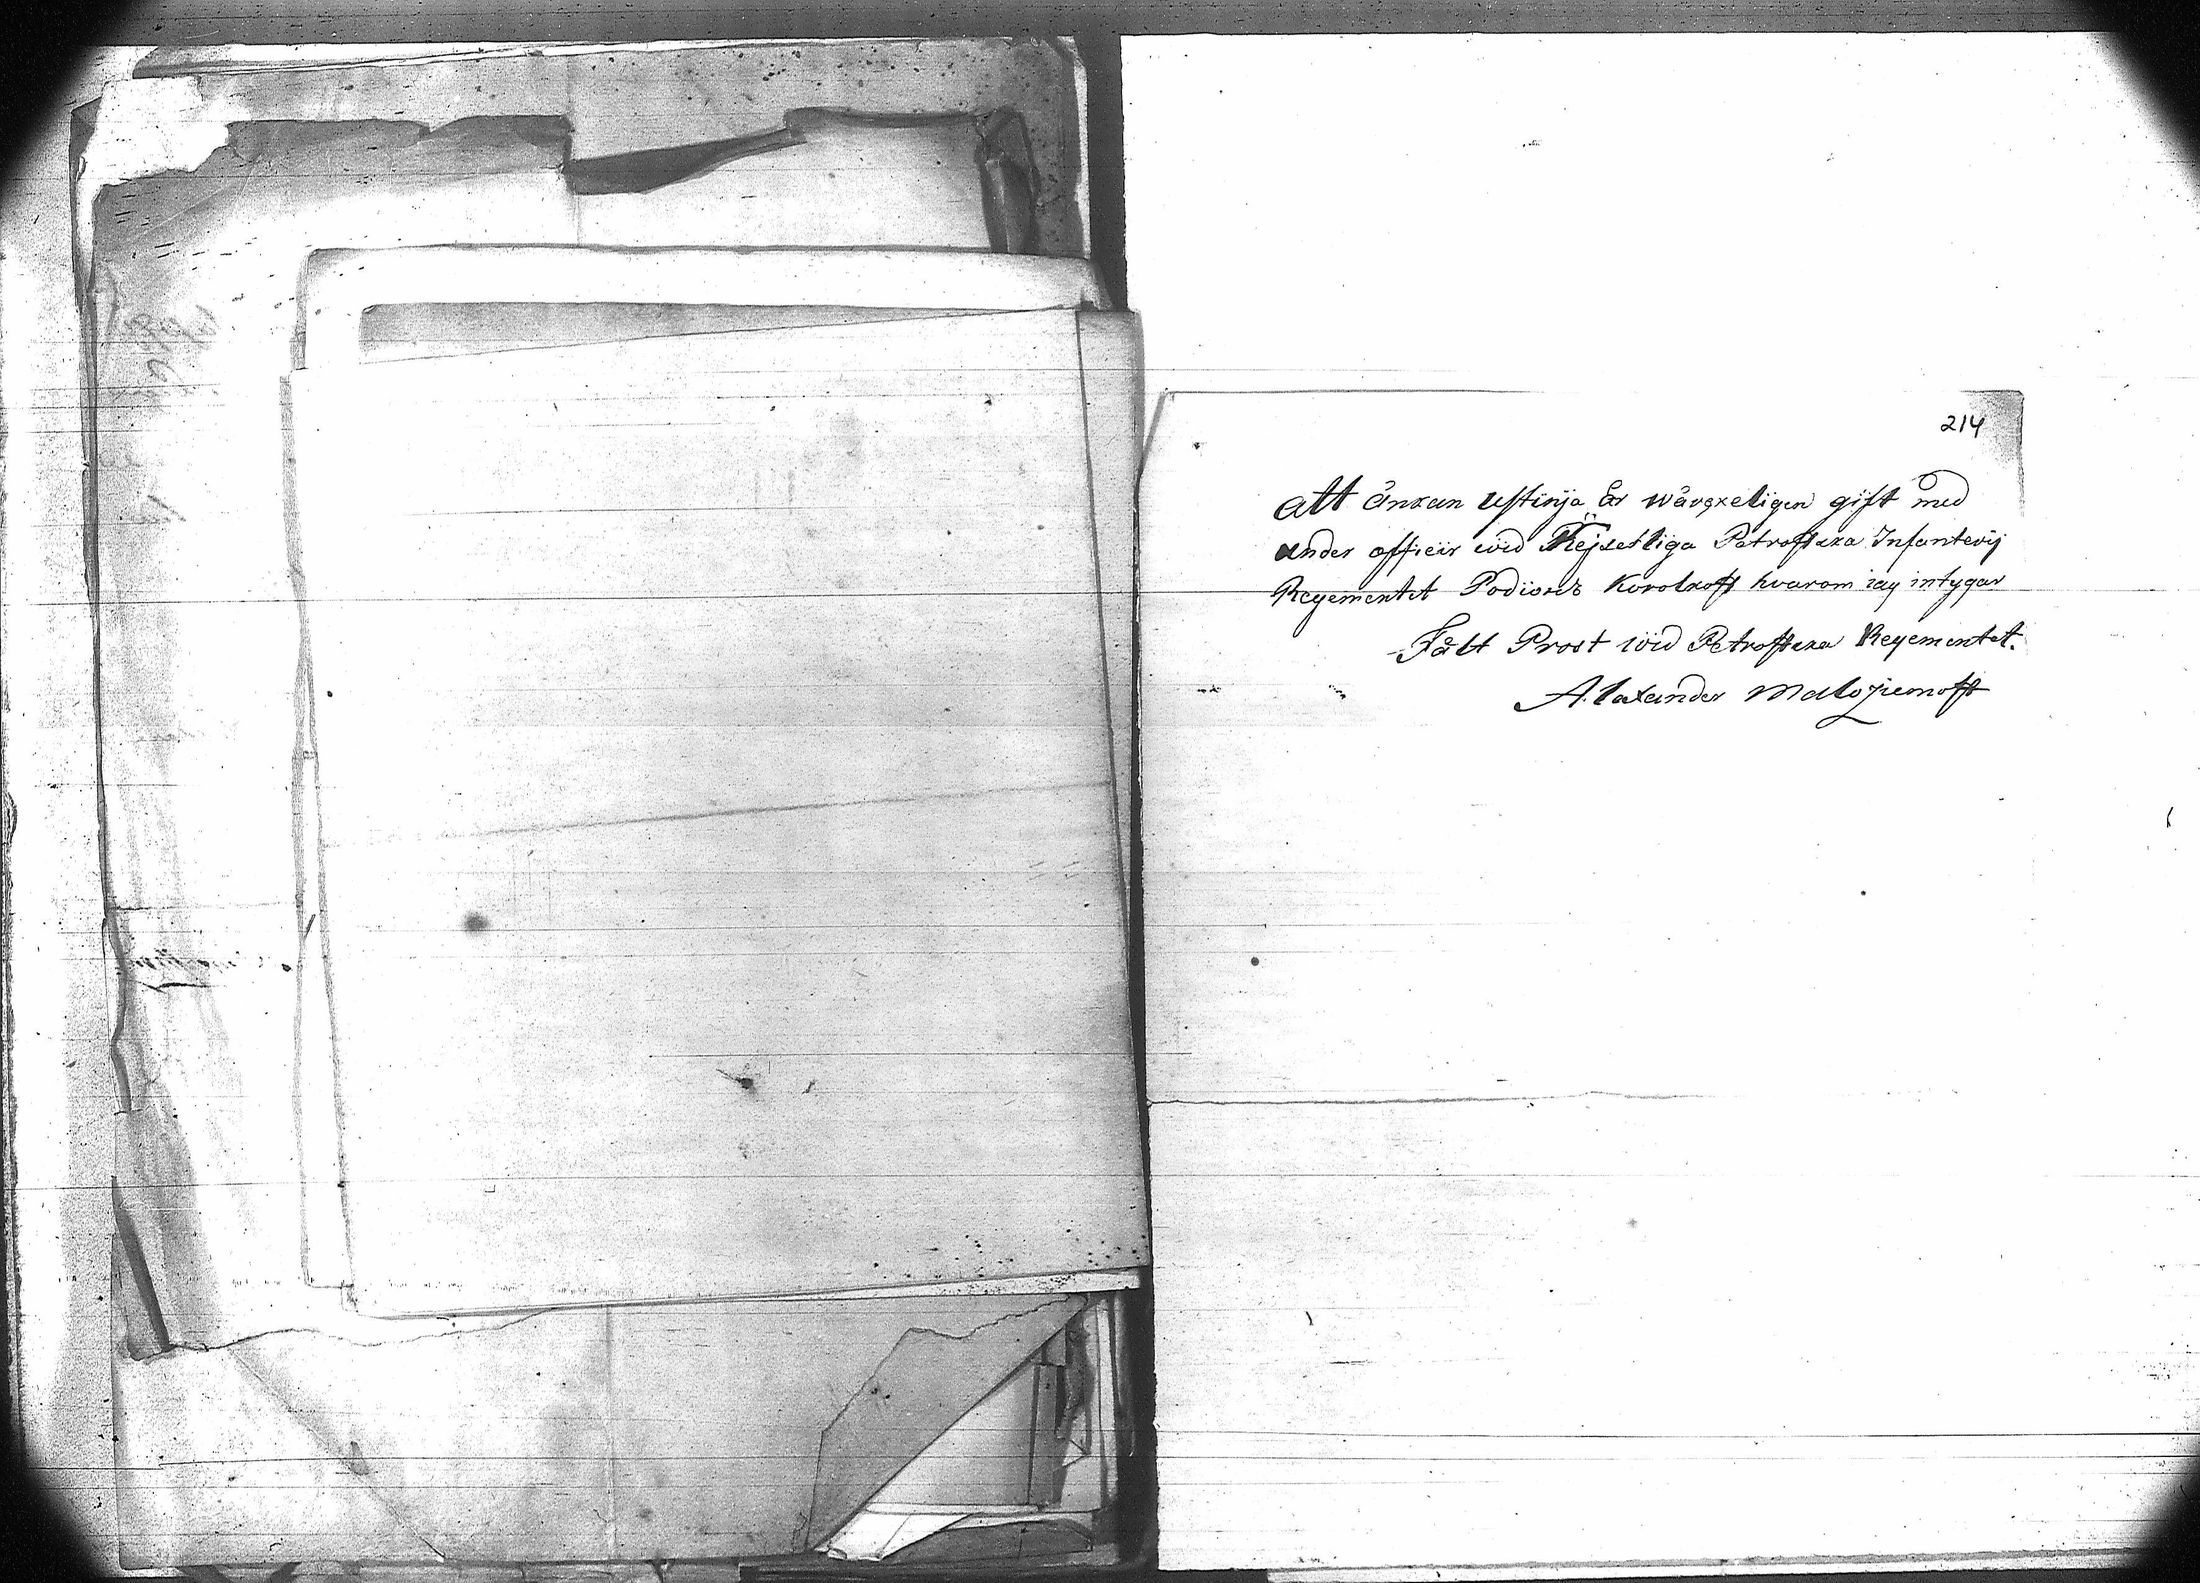 214
Att änkan Ustinja Är wärckeligen gift med
under officeir wid Kejserliga Petroffska Infanterij
Regementet Korolkoff hvarom iag intygar
Fält Prost wid Petroffska Regementet.
Alexander Maloziemoff